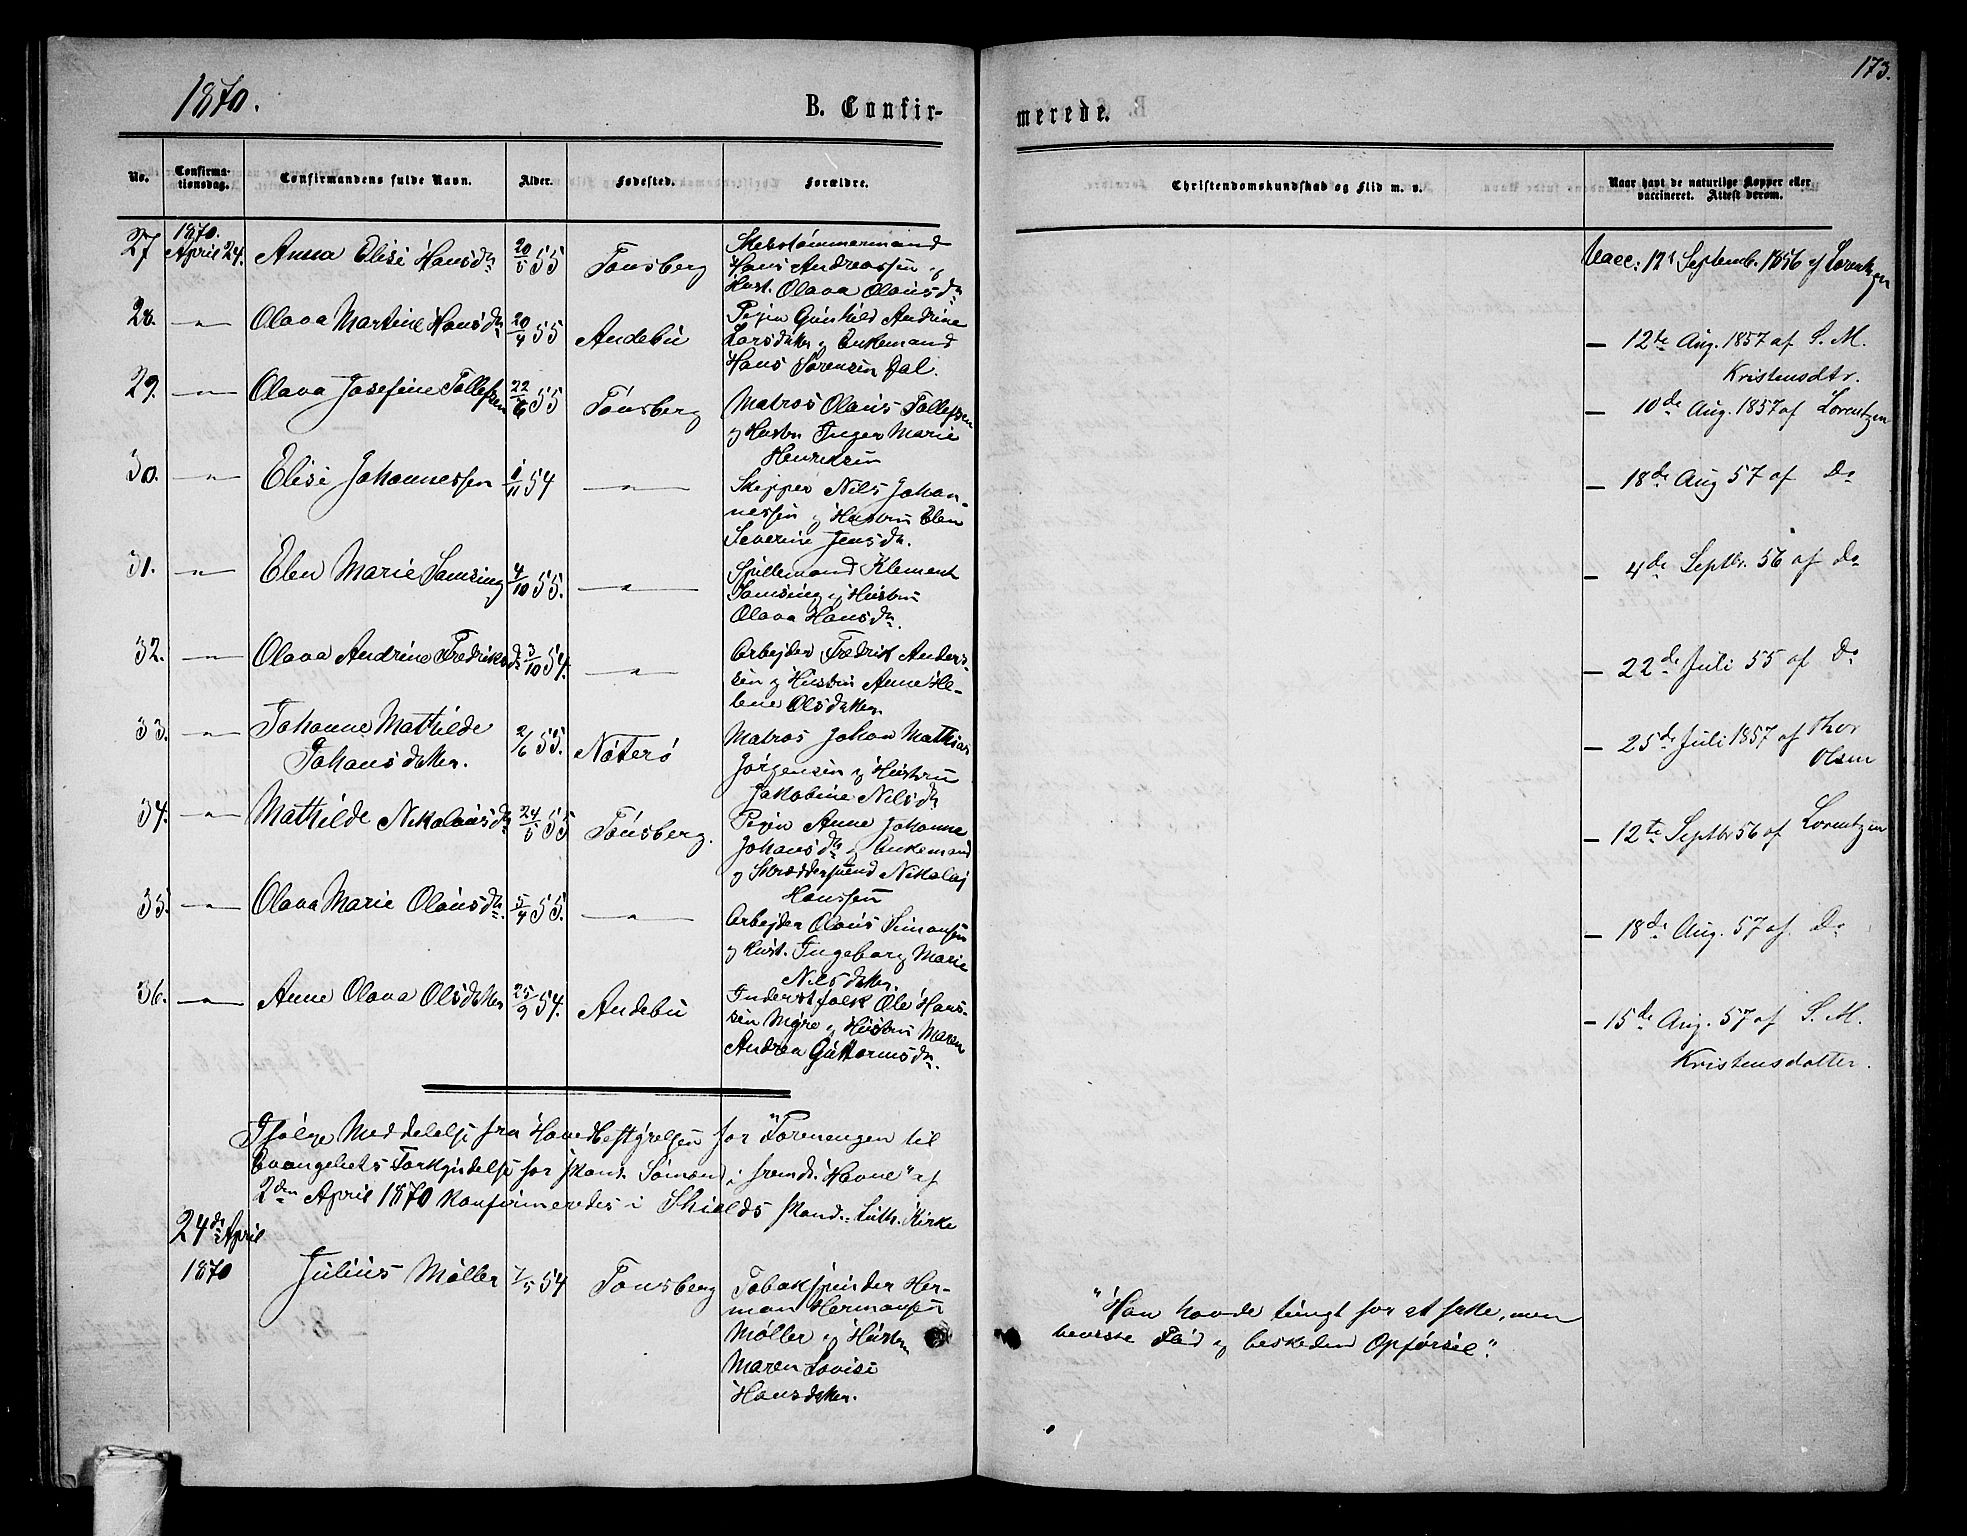 1870.
B. Confir-
merede.
173.
No.
Confirma-
tionsdag.
Confirmandens fulde Navn.
Alder.
Fødested.
Forældre.
Christendomskundskab og Flid m. v.
Naar havt de naturlige Kopper eller
vaccineret. Attest derom.
27 1870. April 24. Anna Elise Hansdr 20/5 55 Tønsberg
Skibstømmermand
Hans Andreassen og
Hust. Olava Olausdr
Vacc: 12t Septemb. 1856 af Lorentzen
28. —"— Olava Martine Hansdr 20/4 55 Andebu
Pigen Gunhild Andrine
Larsdatter og Enkemand
Hans Sørensen Dal.
— 12te Aug. 1857 af S. M.
Kristensdtr.
29. —"— Olava Josefine Tollefsen 22/6 55 Tønsberg
Matros Olaus Tollefsen
og Hustru Inger Marie
Henriksen
— 10de Aug. 1857 af Lorentzen
30. —"— Elise Johannessen 1/11 54 —"—
Skipper Nils Johan-
nessen og Hustru Elen
Severine Jensdr.
— 18de Aug 57 af Do
31. —"— Elen Marie Samsing 4/10 55. —"—
Spillemand Klement
Samsing og Hustru
Olava Hansdr.
— 4de Septbr. 56 af Do
32. —"— Olava Andrine Fredriksd. 3/10 54. —"—
Arbejder Fredrik Anders-
sen og Hustru Anne He-
lene Olsdatter.
— 22de Juli 55 af Do
33. —"— Johanne Mathilde
Johansdatter. 2/6 55. Nøterø
Matros Johan Mathias
Jørgensen og Hustru
Jakobine Nilsdr
— 25de Juli 1857 af Thor
Olsen
34. —"— Mathilde Nikolausdr 24/5 55 Tønsberg.
Pigen Anne Johanne
Johansdr og Enkemand
og Skræddersvend Nikolaj
Hanssen
— 12te Septbr 56 af Lorentzen
35. —"— Olava Marie Olausdr. 5/4 55. —"—
Arbejder Olaus Simonsen
og Hust. Ingeborg Marie
Nilsdatter.
— 18de Aug. 57 af. Do
36. —"— Anne Olava Olsdatter 25/9 54. Andebu
Inderstfolk Ole Hans-
sen Myre og Hustru Maren
Andrea Guttormsdr.
— 15de Aug. 57 af S. M.
Kristensdatter.
Ifølge Meddelelse fra Hovedbestyrelsen for "Foreningen til
Evangeliets Forkyndelse for skand. Sømænd i fremd. Havne" af
2den April 1870 konfirmeredes i Shields skand. Luth. Kirke
24de April
1870 Julius Møller 7/5 54 Tønsberg
Tobakspinder Her-
man Hermansen
Møller og Hustru
Maren Lovise
Hansdatter.
"Han havde tungt for at fatte, men
beviste Flid og beskeden Opførsel".